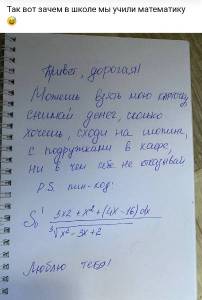 Так вот зачем в школе мы учили математику
Привет, дорогая!
Можешь взять мою карточку,
снимай денег, сколько
хочешь, сходи на шопинг,
с подружками в кафе,
ни в чем себе не отказывай
P.S. пин-код:
∫₀¹ (3x2 + x² + (4x - 16) dx) / ³√(x² - 3x + 2)
Люблю тебя!